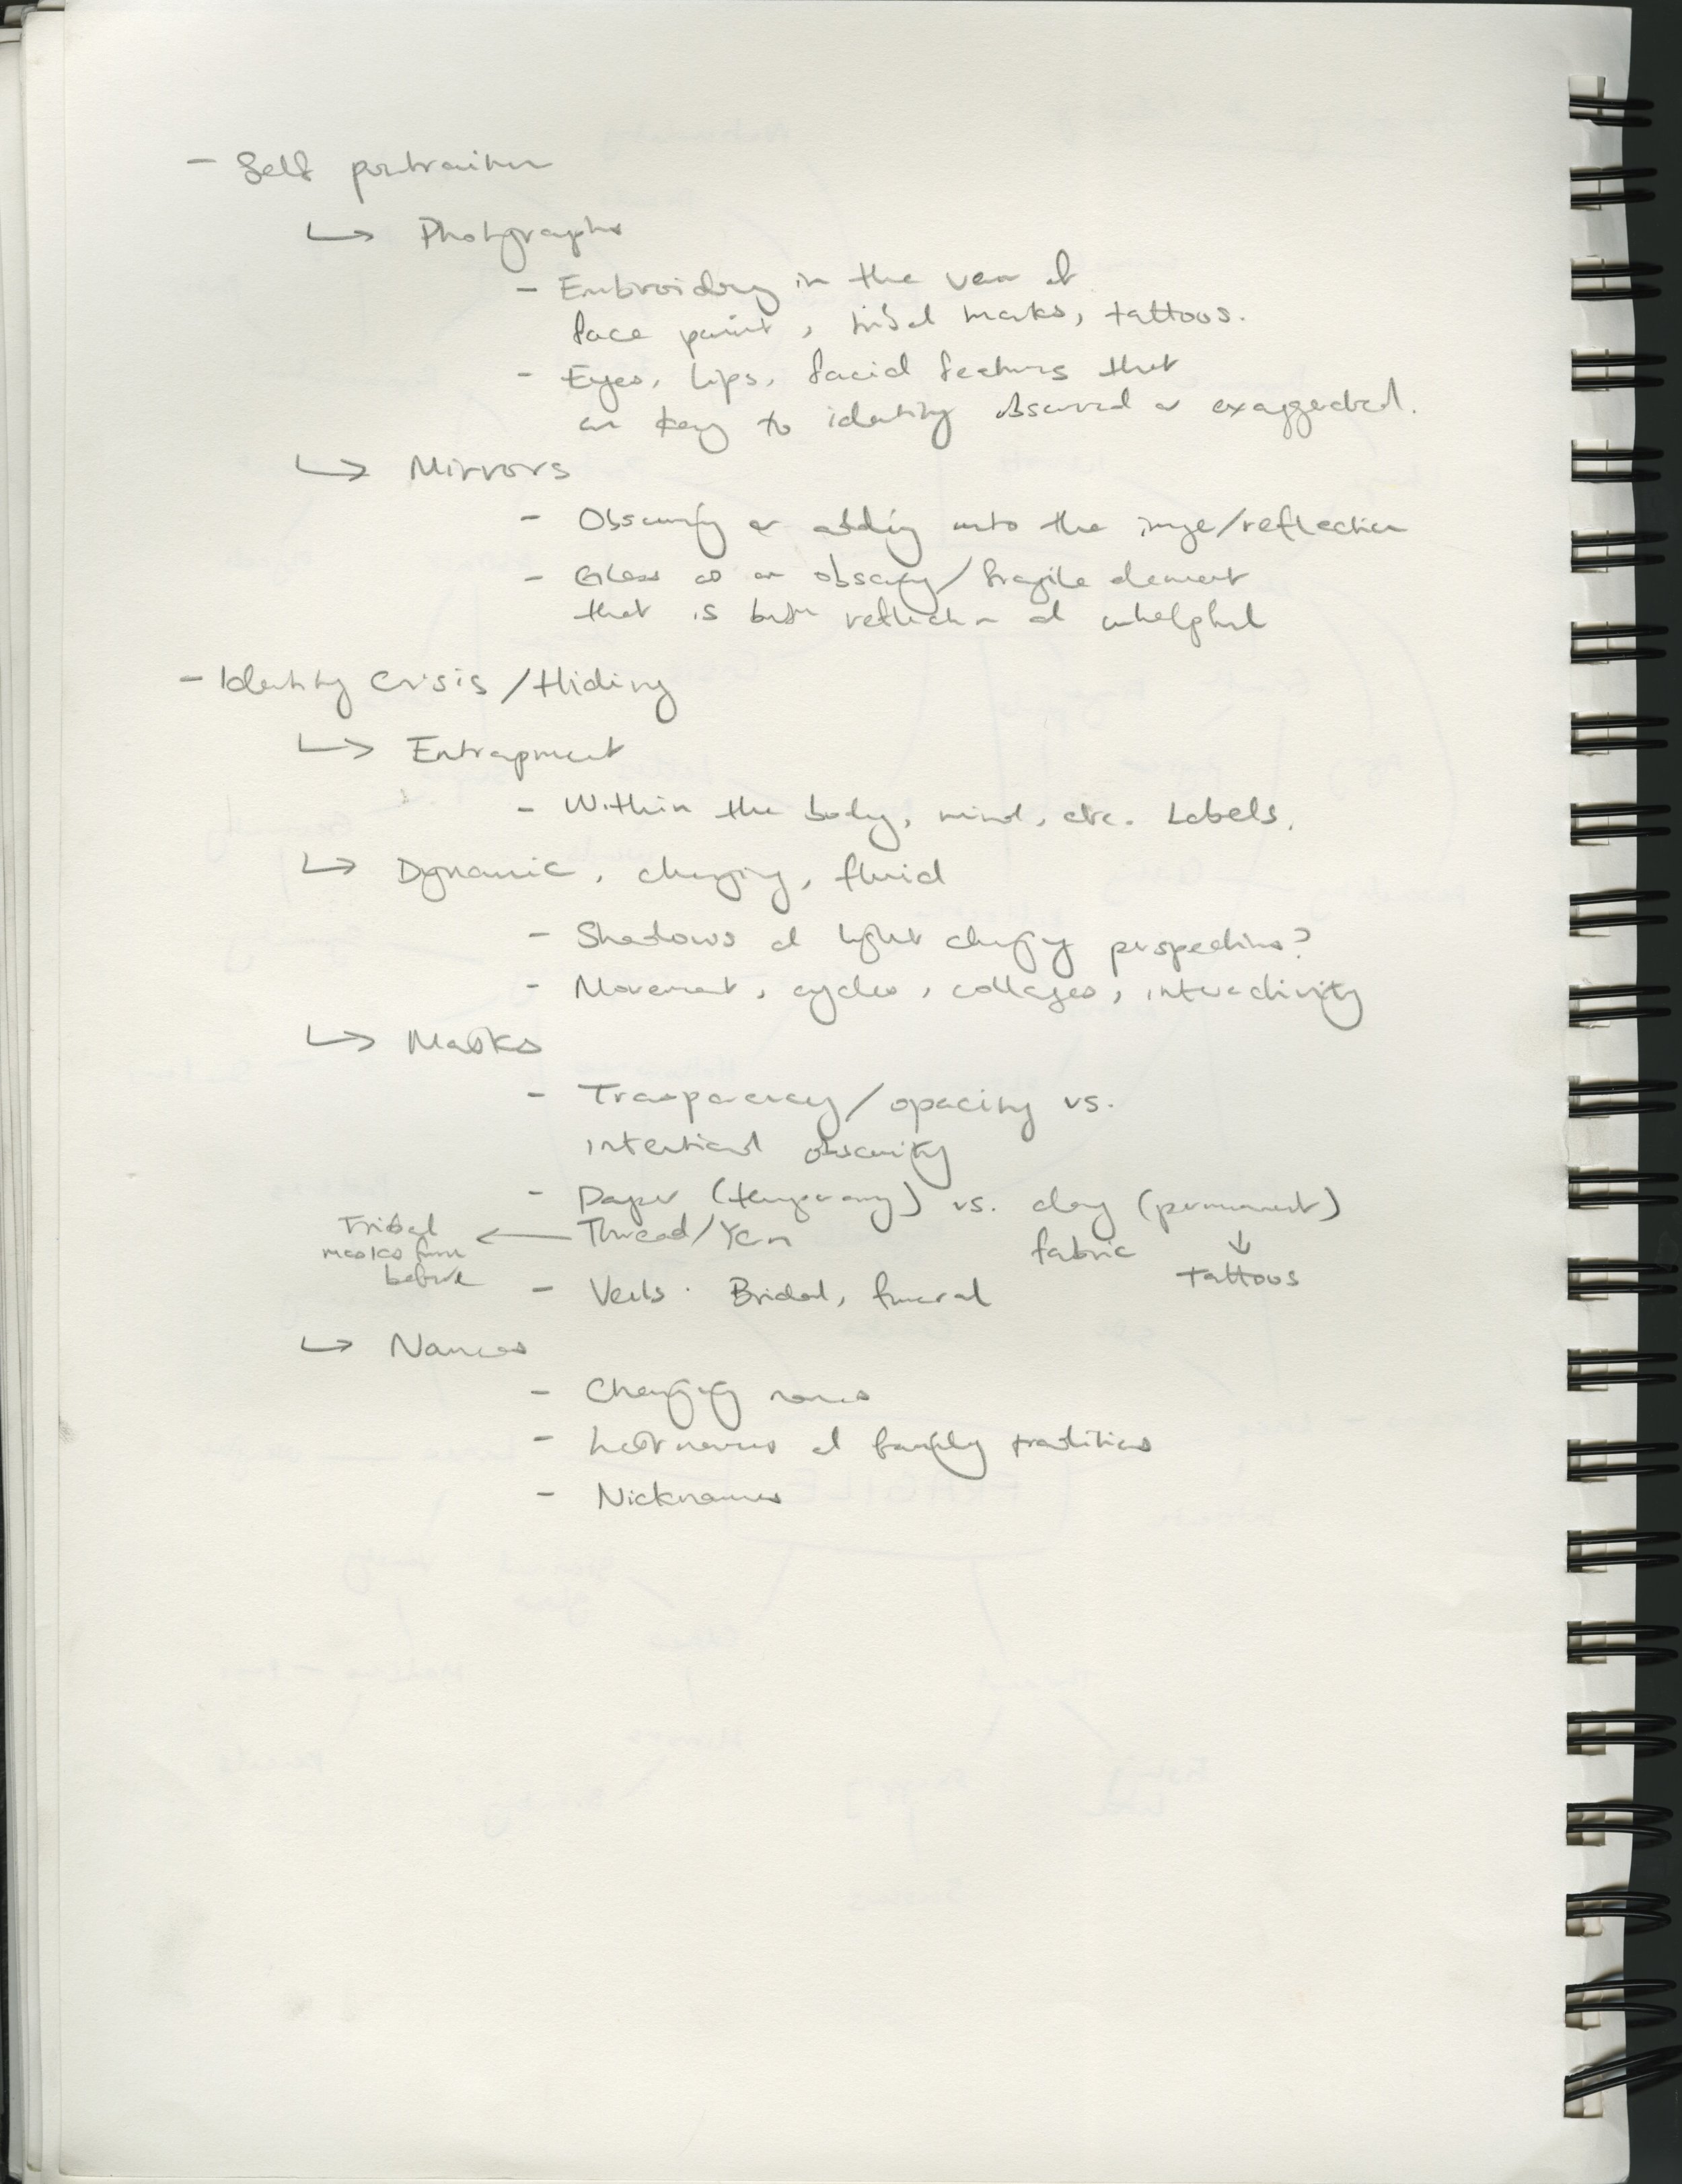 - Self portraiture
↳ Photographs
- Embroidery in the vein of
face paint, tribal marks, tattoos.
- Eyes, lips, facial features that
are key to identity obscured or exaggerated.
↳ Mirrors
- Obscuring or adding onto the image/reflection
- Glass as an obscuring/fragile element
that is both reflection and
↳ 
- Identity Crisis/Hiding
↳ Entrapment
- Within the body, mind, etc. Labels.
↳ Dynamic, changing, fluid
- Shadows and light changing perspective?
- Movement, cycles, collages, interactivity
↳ Masks
- Transparency/opacity vs.
intentional obscurity
- Paper (temporary) vs. clay (permanent)
Tribal masks from before ← Thread/Yarn fabric ↓ tattoos
- Veils. Bridal, funeral
↳ Names
- Changing names
- Last names and family traditions
- Nicknames